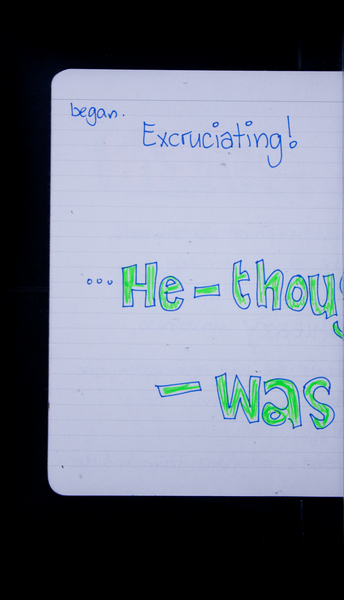 began.
Excruciating!
...He - thoug
- was